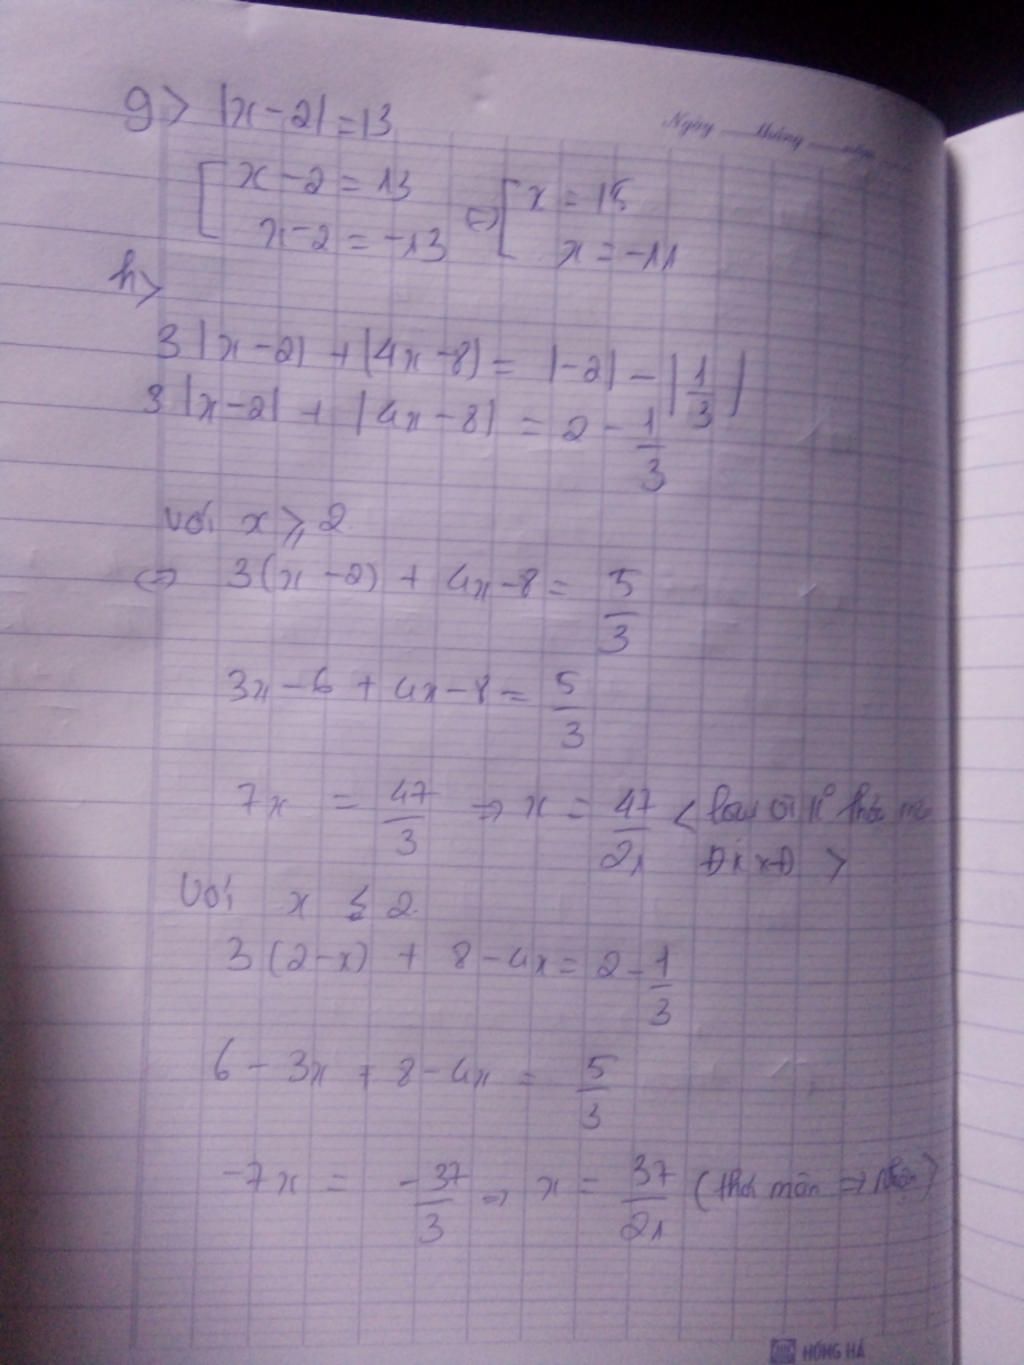 g> |x-2| = 13
Ngày tháng năm
[ x-2 = 13 <=> [ x = 15
x-2 = -13 x = -11
h>
3|x-2| + |4x-8| = |-2| - |1/3|
3|x-2| + |4x-8| = 2 - 1/3
Với x ⩾ 2
<=> 3(x-2) + 4x-8 = 5/3
3x-6 + 4x-8 = 5/3
7x = 47/3 => x = 47/21 < loại vì k° thỏa mãn
ĐKXĐ >
Với x ≤ 2
3(2-x) + 8-4x = 2 - 1/3
6 - 3x + 8-4x = 5/3
-7x = -37/3 => x = 37/21 (thỏa mãn => nhận)
HỒNG HÀ